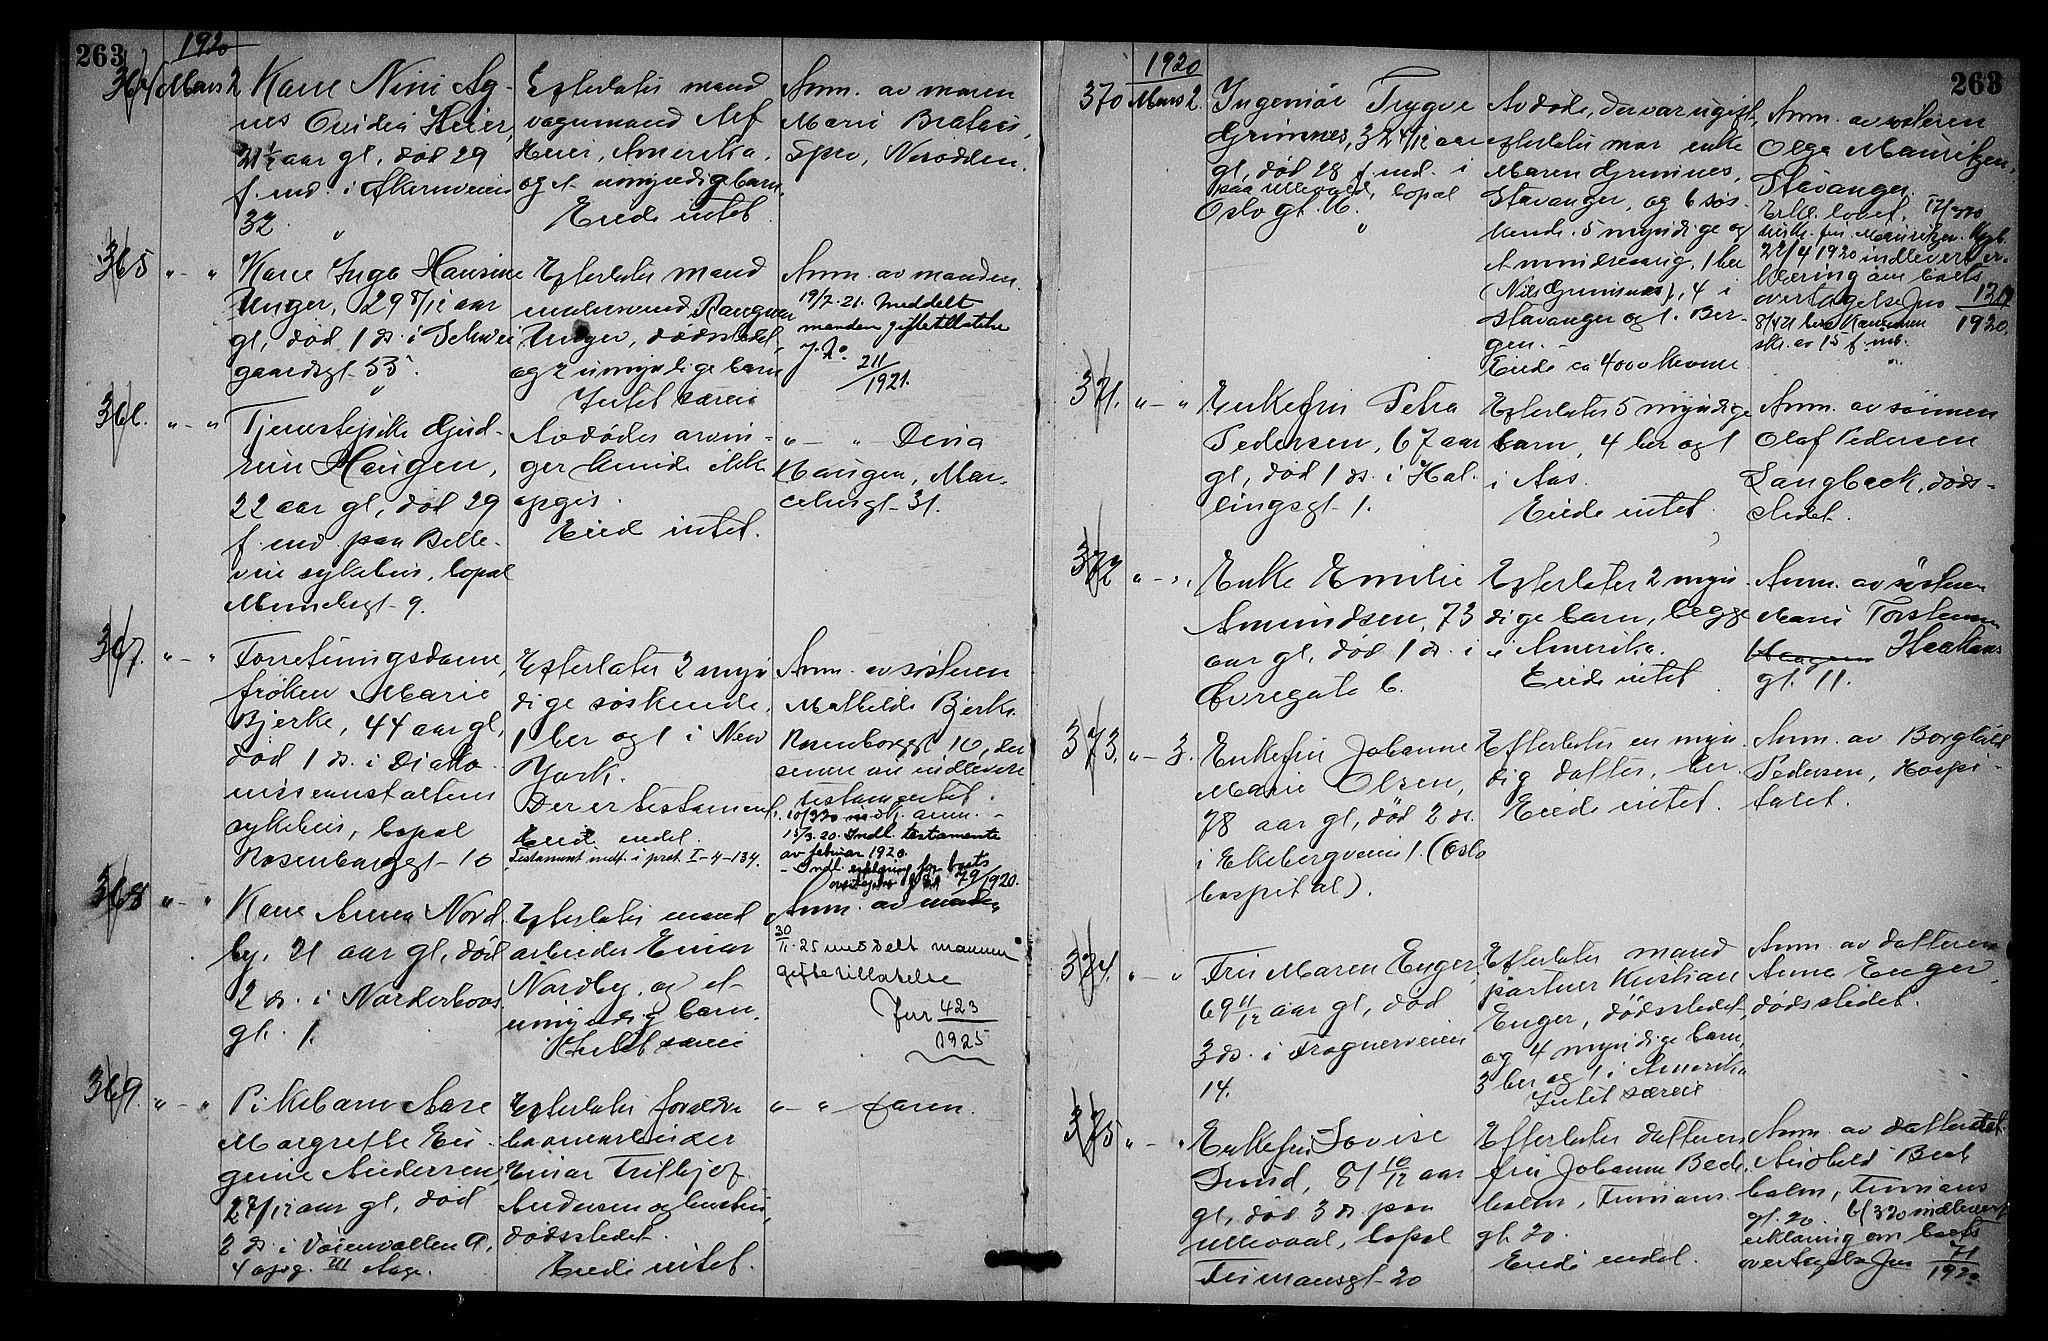 263
1920
364 Mars 2
Kone Nini Ag-
nes Ovidia Heier,
21 1/2 aar gl, død 29
f. md. i Akersveien
32.
Efterlater mand
vognmand Alf
Heier, Amerika,
og et umyndig barn.
Eiede intet.
Anm. av moren
Marie
Spro, Nesodden.
365 " - "
Kone Inga Hansine
Unger, 29 5/12 aar
gl, død 1 ds. i Schwei
gaardsgt 55.
Efterlater mand
Unger, dødsstedet,
og 2 umyndige barn
Intet særeie
Anm. av manden.
19/7-21. Meddelt
manden giftetillatelse
J. No. 211/1921.
366. " - "
Tjenestepike Gud-
run Haugen,
22 aar gl, død 29
f. md. paa Belle-
vue sykehus, bopæl
9.
Avdødes arvin-
ger kunde ikke
opgis.
Eied intet.
" - " Dina
Haugen, Mar-
celiusgt 31.
367. " - "
Forretningsdame,
frøken Marie
Bjerke, 44 aar gl,
død 1 ds. i Diako-
nisseanstaltens
sykehus, bopæl
Rosenborggt 10
Efterlater 2 myn
dige søskende,
1 her og 1 i New
York.
Der er testament.
Eied endel.
Testament indf. i prot. I-4-134.
Anm. av søsteren
Mathilde Bjerke
Rosenborggt 10, der
senere vil indlevere
testamentet.
10/3 20 anm.
15/3. 20. Indl. testamente
av februar 1920.
- Indl. erklæring for boets
overtagelse 79/1920.
368 " - "
Kone Anna Nord
by, 21 aar gl, død
2 ds. i Norderhovs
gt. 1.
Efterlater mand
arbeider Einar
Nordby, og et
umyndig barn.
Intet særeie
Anm. av manden
30/11-25 meddelt mannen
giftetillatelse
Jnr 423/1925
369. " - "
Pikebarn Aase
Margrethe Eu-
genie Andersen,
2 7/12 aar gl, død
2 ds. i Voienvolden 9,
4 opg. III etage.
Efterlater forældre
Einar Frithjof
Andersen og hustru,
dødsstedet.
Eiede intet.
" - " faren.
263
1920
370 Mars 2.
Ingeniør Trygve
Grimnes, 32 4/12 aar
gl, død 28 f. md. i
paa Ullevaal, bopæl
Oslo gt. 16.
Avdøde, der var ugift,
efterlater mor enke
Maren Grimnes,
Stavanger, og 6 søs-
kende. 5 myndige og
1 mindreaarig, 1 her
(Nils Grimsnes), 4 i
Stavanger og 1 i Ber-
gen. -
Eiede ca 4000 kroner
Anm. av søsteren
Olga Mauritzen,
Stavanger.
22/4 1920 indlevert er-
klæring om boets
overtagelse Jnr 130/1920.
371. " - "
Enkefru Petra
Pedersen, 67 aar
gl, død 1 ds. i Hal-
lingsgt 1.
Efterlater 5 myndige
barn, 4 her og 1
i Aas.
Eiede intet.
Anm. av sønnen
Olaf Pedersen
Langbeck, døds-
stedet.
372 " - "
Enke Emilie
Amundsen, 73
aar gl, død 1 ds. i
Evregate 6.
Efterlater 2 myn
dige barn, begge
i Amerika.
Eiede intet
Anm. av søsteren
Marie Torstensen
Haakons
gt. 11.
373. " - 3.
Enkefru Johanne
Marie Olsen,
78 aar gl, død 2 ds.
i Ekebergveien 1. (Oslo
hospital).
Efterlater en myn
dig datter, her.
Eiede intet.
Anm. av Borghild
Pedersen, Hospi-
talet.
374. " - "
Fru Maren Enger,
69 11/12 aar gl, død
3 ds. i Frognerveien
14.
Efterlater mand
portner Kristian
Enger, dødsstedet,
og 4 myndige barn,
3 her og 1 i Amerika
Intet særeie
Anm. av datteren
Anna Enger,
dødsstedet.
375 " - "
Enkefru Lovise
Lund, 81 10/12 aar
gl, død 3 ds. paa
Ullevaal, bopæl
Tiimansgt 20
Efterlater datteren
fru Johanne Beck-
holm, Tiimans
gt 20.
Eiede endel.
Anm. av datterdat.
holm, Tiimans
gt. 20. 6/3 20 indlevert
erklæring om boets
overtagelse Jnr 71/1920